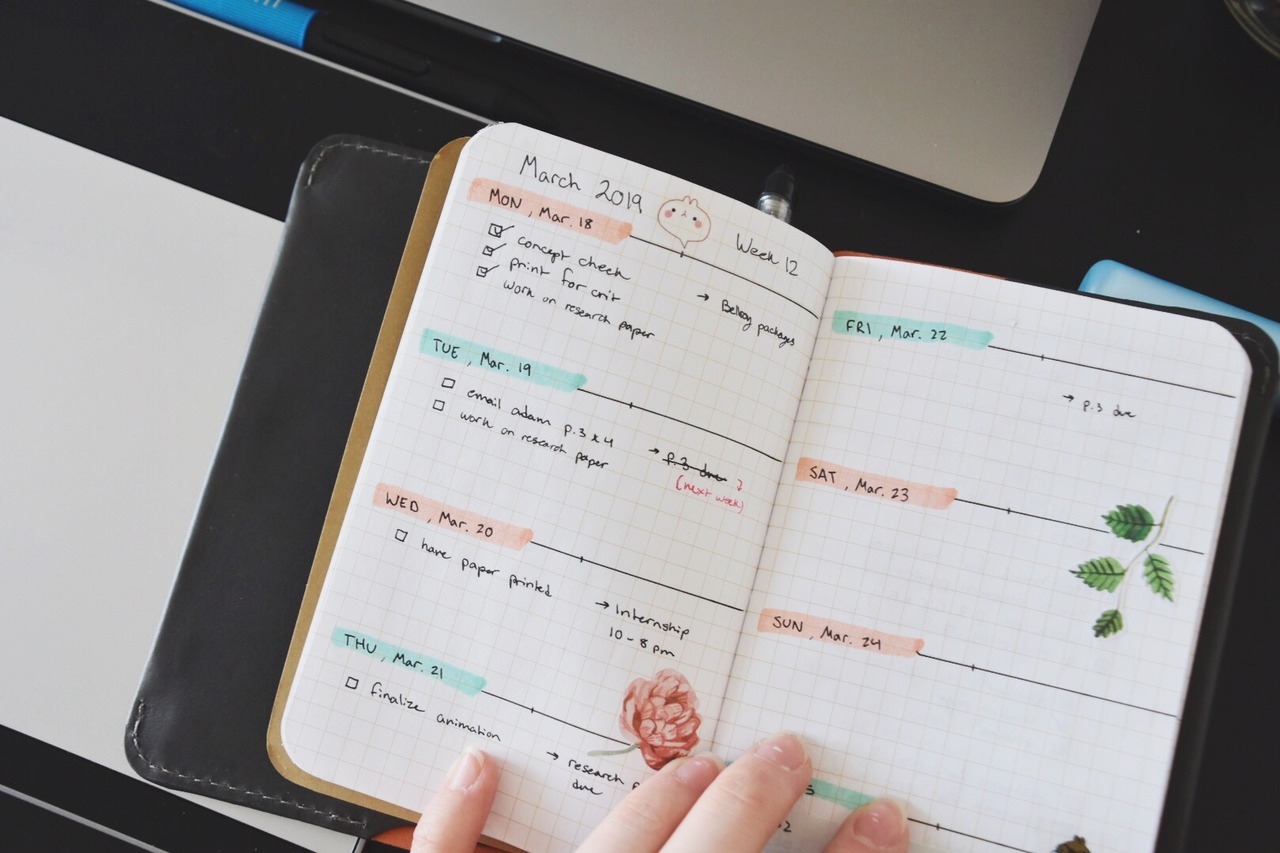 March 2019
Week 12
MON, Mar. 18
concept check
print for crit
work on research paper
→ Bellroy packages
TUE, Mar. 19
email adam p.3 & 4
work on research paper
→ p.3 due
(next week)
WED, Mar. 20
have paper printed
→ Internship
10 - 8 pm
THU, Mar. 21
finalize animation
→ research
due
FRI, Mar. 22
→ p.3 due
SAT, Mar. 23
SUN, Mar. 24